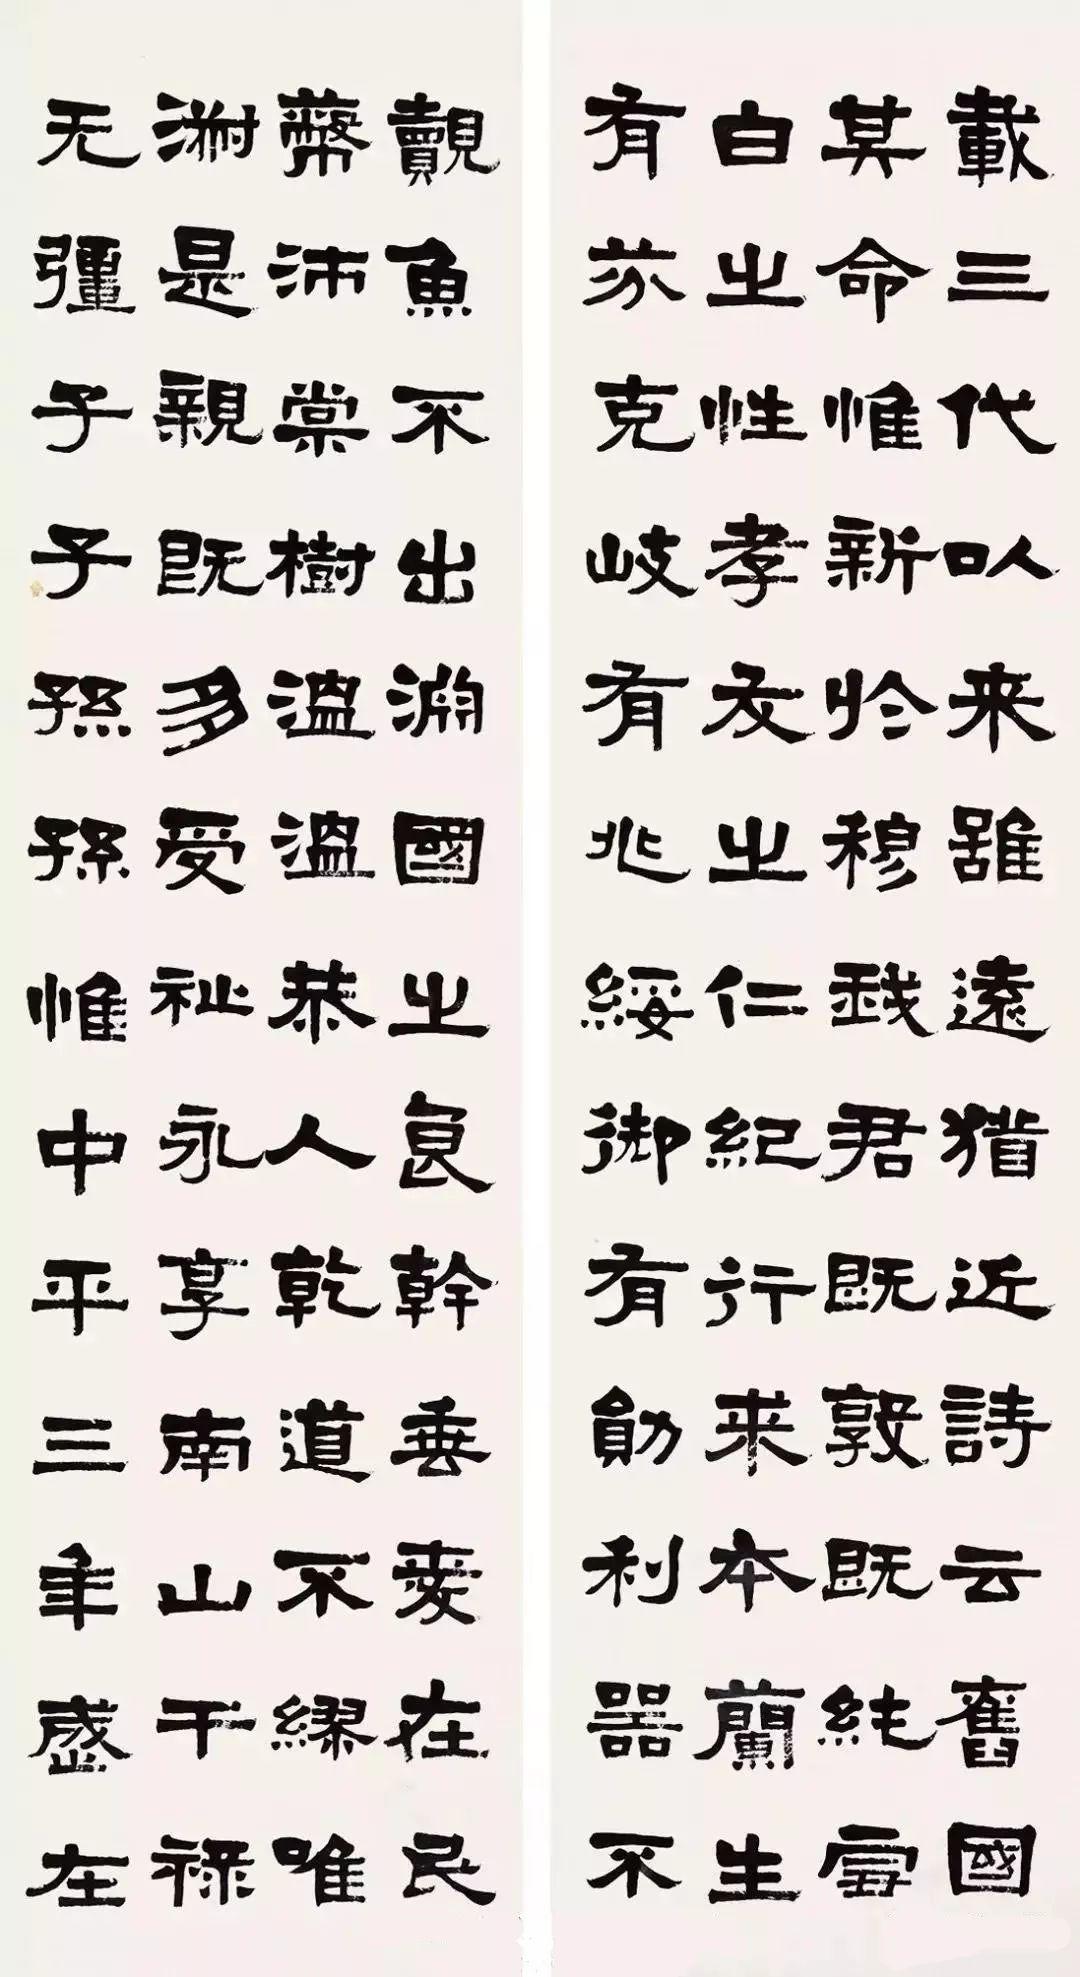 載三代以来雖遠猶近詩云舊國
其命惟新於穆我君既敦既純雪
白之性孝友之仁紀行来本蘭生
有芬克岐有兆綏御有勛利器不
覿魚不出淵國之良幹垂愛在民
蔽沛棠樹溫溫恭人乾道不繆唯
淑是親既多受祉永享南山干禄
无疆子子孫孫惟中平三年歲在